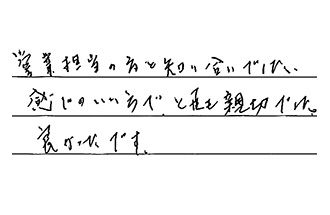 営業担当の方と知り合いでした、
感じのいい方で、とても親切でした。
良かったです。